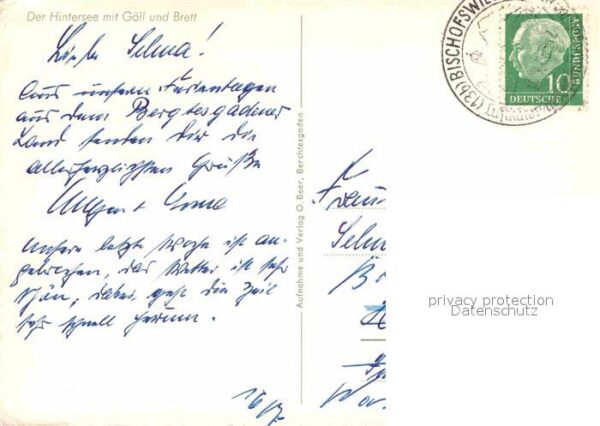 Der Hintersee mit Göll und Brett
Liebe Selma!
Aus unsern Ferientagen
aus dem Bergtesgadener
Land senden dir die
allerherzlichsten Grüße
Unsere letzte Woche ist an-
gebrochen, das Wetter ist sehr
schön, dabei geht die Zeit
sehr schnell herum.
Aufnahme und Verlag O. Beer, Berchtesgaden
(13b) BISCHOFSWIE
10
DEUTSCHE
BUNDESPOST
Frau
Selm
privacy protection
Datenschutz